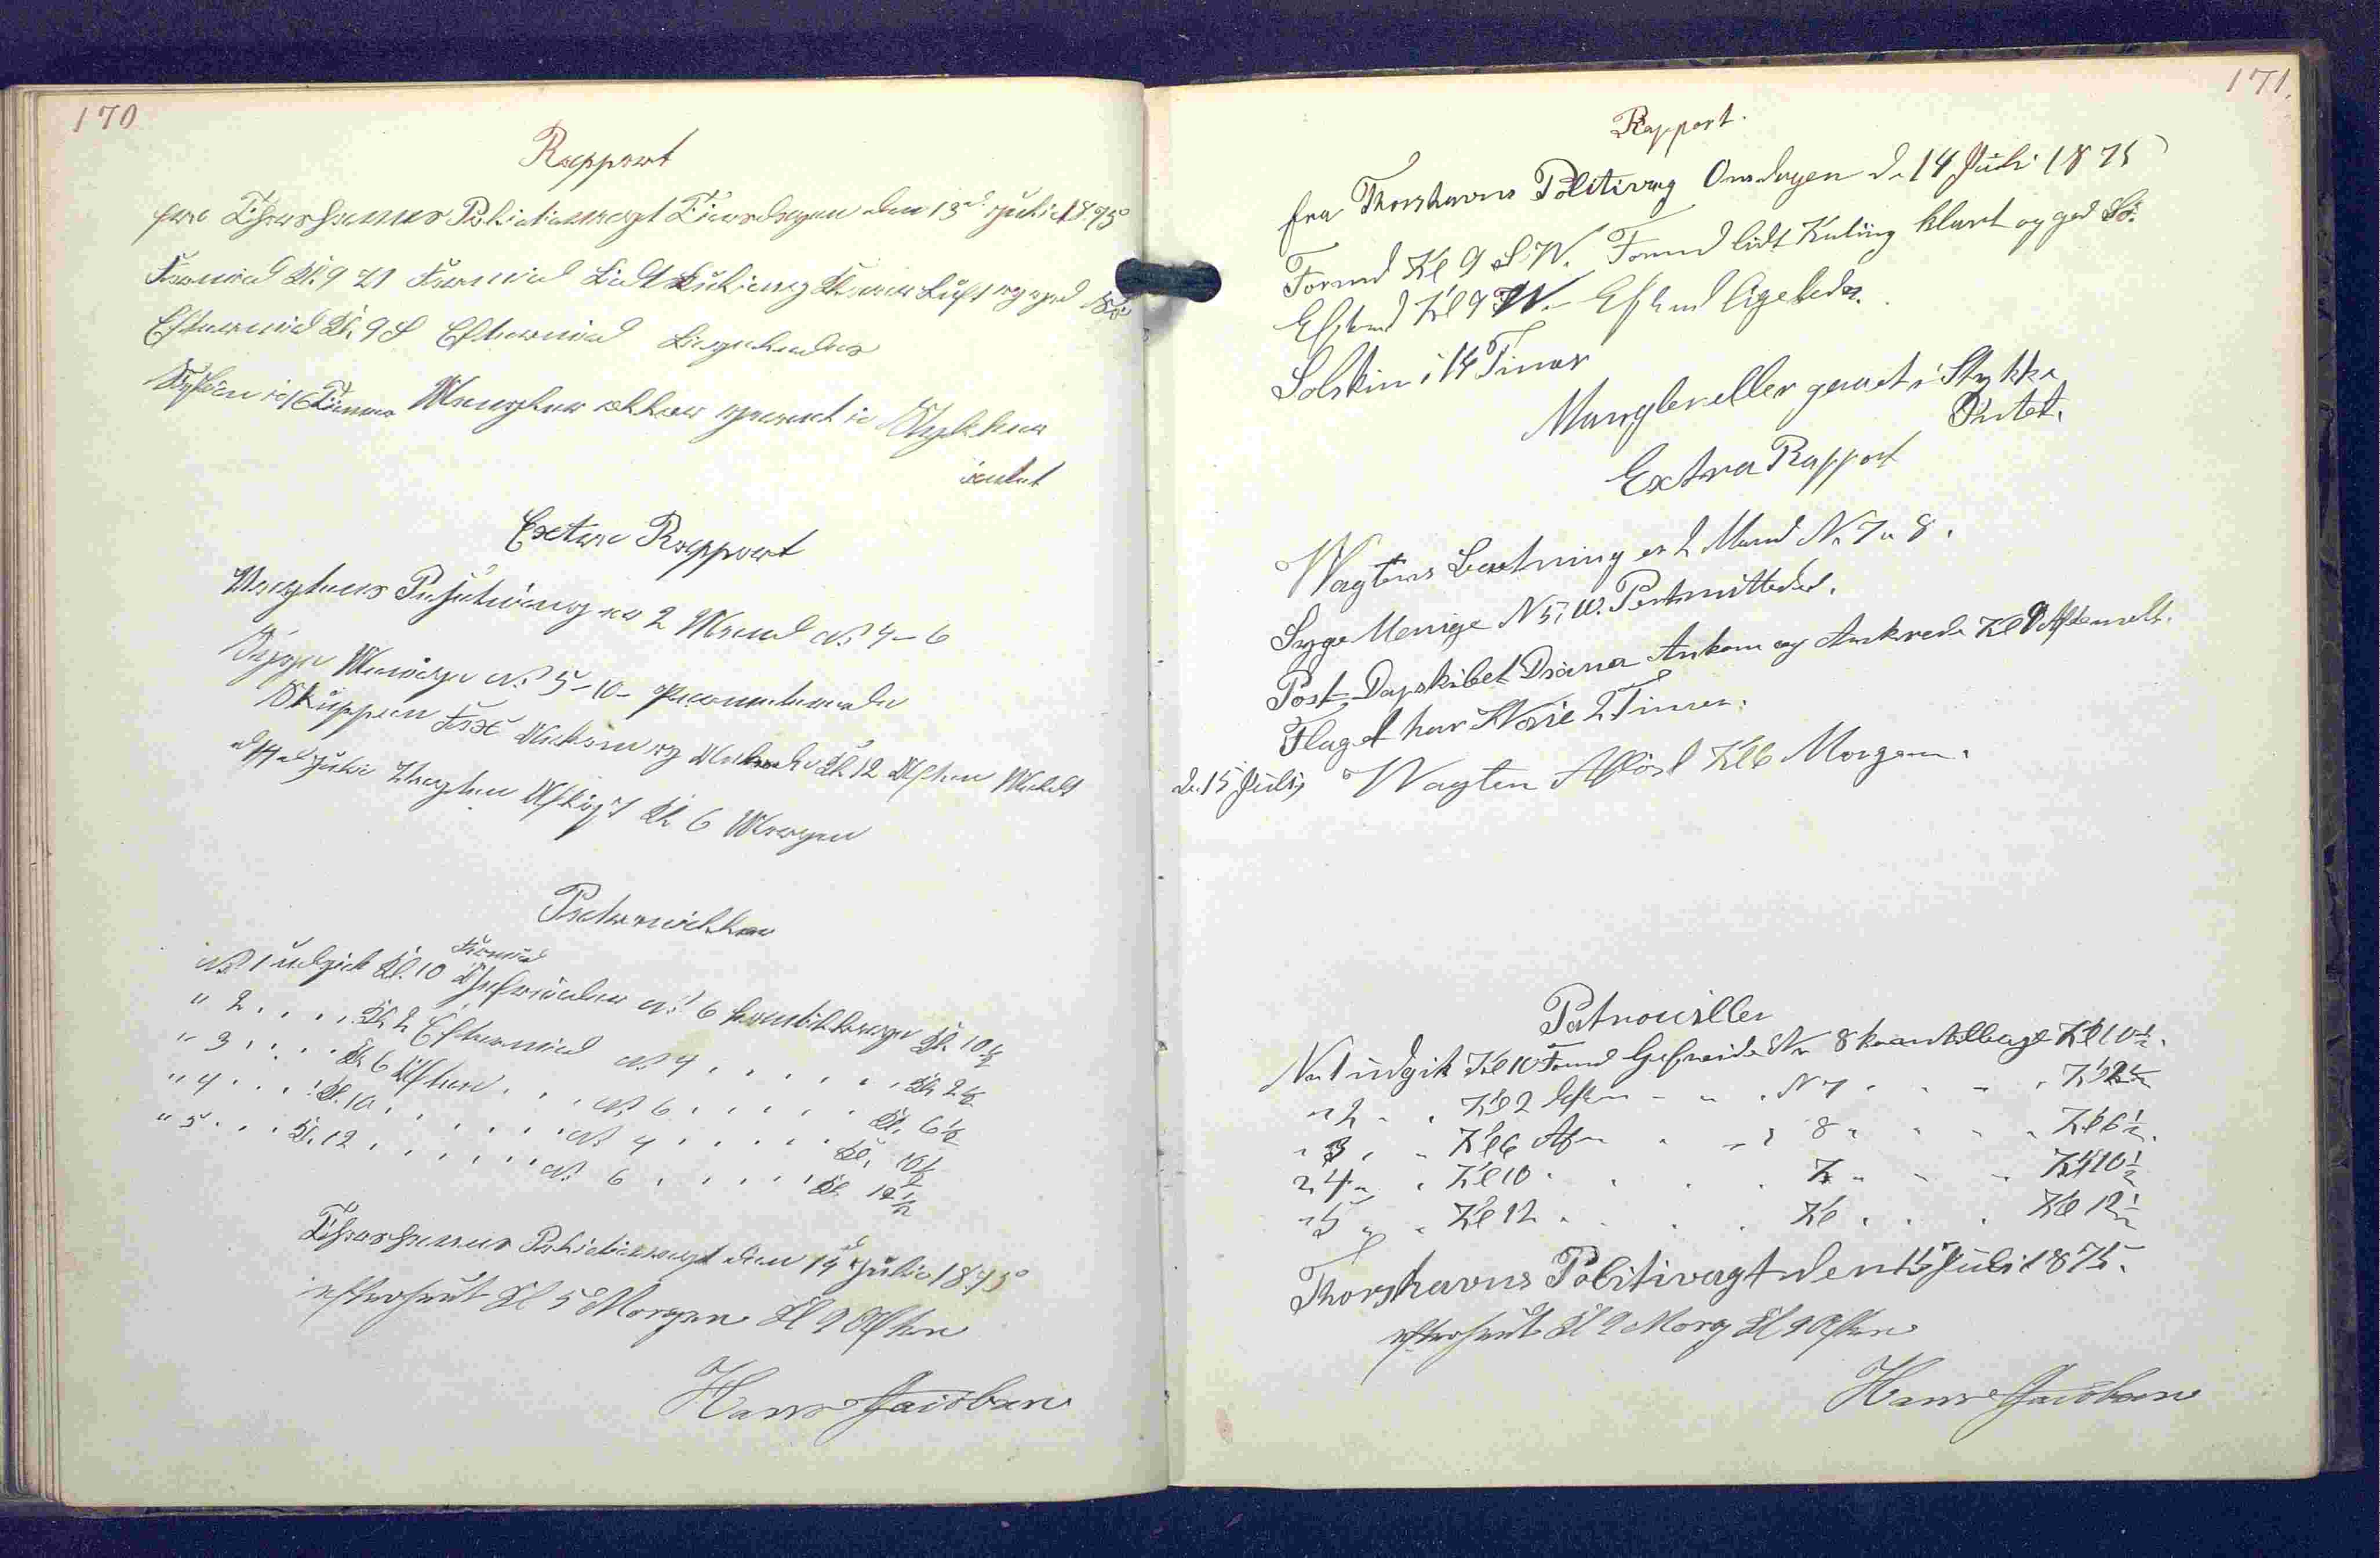 170
Rapport
fra Thorshavns Politievagt Tirsdagen den 13de Juli 1875
Formid Kl. 9 N Formid Lidt Kuling Klar Luft og god Sö
Eftermid Kl. 9 S Eftermid Ligeledes
Mangler eller Havari i Stykker
intet
Extra Rapport
Vagtens Besetning er 2 Mand No 4-6
Syge Menige No 5-10- Permiterede
Skuppen Fox Ankom og Ankrede Kl 12 Aften Meldt
d 14de Juli Vagten Aflöst Kl 6 Morgen
Patrouiller
Formid
No 1 udgik Kl. 10 Gefreider No 6 kom tilbage Kl. 10½
" 2 . . . . Kl. 2 Eftermid No 4 . . . . . . Kl. 2½
" 3 . . . . Kl. 6 Aften . . . No 6 . . . . . . Kl. 6½
" 4 . . . . Kl. 10 . . . . . . No 4 . . . . . . Kl. 10½
" 5 . . . . Kl. 12 . . . . . . No 6 . . . . . . Kl. 12½
Thorshavns Politievagt den 14de Juli 1875
efterseet Kl 5 Morgen Kl 9 Aften
Hans Jacobsen
171.
Rapport.
fra Thorshavns Politivag Onsdagen d. 14 Juli 1875
Formd Kl 9 S.W. Formd lidt Kuling klart og god Sö.
Eftmd Kl 9 W. Eftmd ligeledes.
Solskin i 14 Timer
Mangler eller gaaet i Stykke
Intet.
Extra Rapport
Wagtens Besetning er 2 Mand No 7 u 8.
Syge Menige N 5, 10. Permitteded.
Post-Dapskibet Diana Ankom og Ankrede Kl 9 Aftemelt.
Flaget har Waie 2 Timer.
d. 15 Juli, Wagten Aflöst Kl 6 Morgen.
Patrouiller
No 1 udgik Kl 10 Formd Gefreide No 8 kom tilbage Kl 10½.
" 2 " . Kl 2 Eftm - " . N 7 . . - . Kl 2½
" 3 . " Kl 6 Af " . " 8 " . . " Kl 6½.
" 4 " . Kl 10 . . . . 7 " . " Kl 10½
" 5 " . Kl 12 . . . . Kl . . . Kl 12½
Thorshavns Politivagt den 15 Juli 1875.
efterseet Kl 9 Morg Kl 9 Aften
Hans Jacobsen